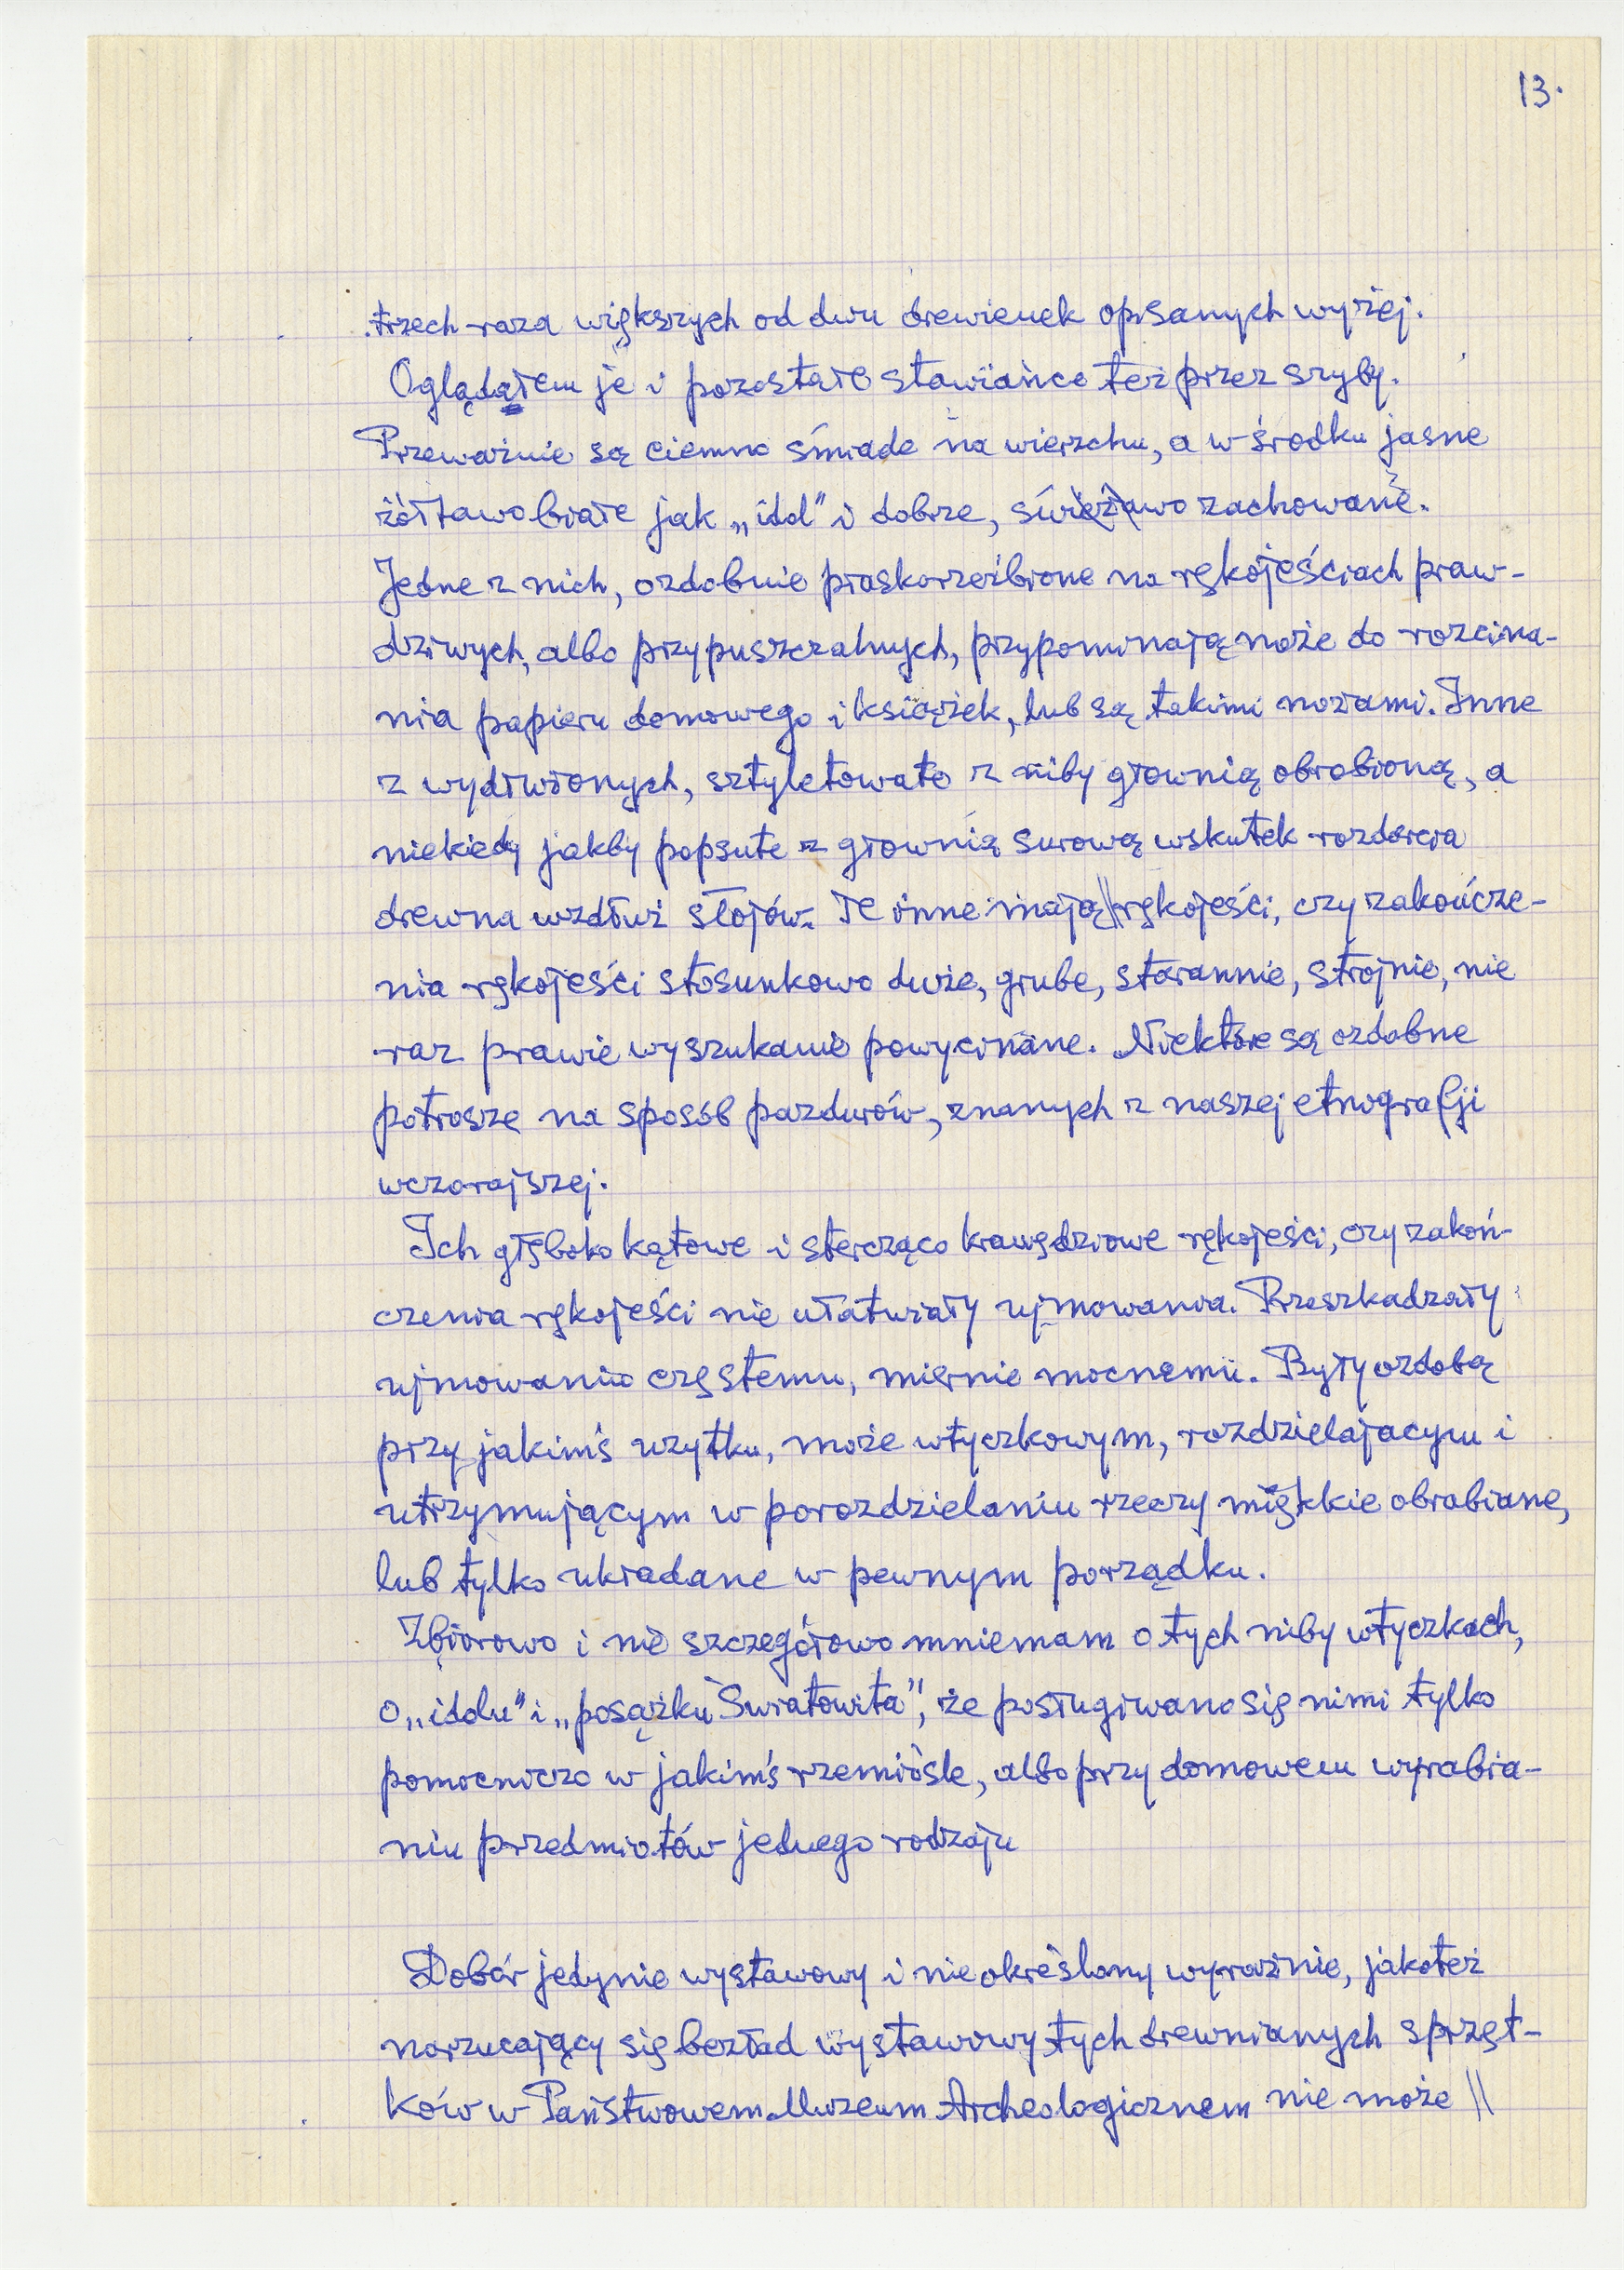 13.
trzech raza większych od dwu drewienek opisanych wyżej.
Oglądałem je i pozostałe sławiańce też przez szyby.
Przeważnie są ciemno śniade na wierzchu, a w środku jasne
żółtawobiałe jak „idol” i dobrze, świeżawo zachowane.
Jedne z nich, ozdobnie płaskorzeźbione na rękojeściach praw-
dziwych, albo przypuszczalnych, przypominają noże do rozcina-
nia papieru domowego i książek, lub są takimi nożami. Inne
z wydłużonych, sztyletowate z niby głownią obrobioną, a
niekiedy jakby popsute z głownią surową wskutek rozdarcia
drewna wzdłuż słojów. Te inne mają || rękojeści, czy zakończe-
nia rękojeści stosunkowo duże, grube, starannie, strojnie, nie
raz prawie wyszukanie powycinane. Niektóre są ozdobne
potrosze na sposób pazdurów, znanych z naszej etnografji
wczorajszej.
Ich głęboko kątowe i stercząco krawędziowe rękojeści, czy zakoń-
czenia rękojeści nie ułatwiały ujmowania. Przeszkadzały
ujmowaniu częstemu, miernie mocnemu. Były ozdobą
przy jakimś użytku, może wtyczkowym, rozdzielajacym i
utrzymującym w porozdzielaniu rzeczy miękkie obrabiane,
lub tylko układane w pewnym porządku.
Zbiorowo i nie szczegółowo mniemam o tych niby wtyczkach,
o „idolu” i „posążku Światowita”, że posługiwano się nimi tylko
pomocniczo w jakimś rzemiośle, albo przy domowem wyrabia-
niu przedmiotów jednego rodzaju
Dobór jedynie wystawowy i nie określony wyraźnie, jakoteż
narzucający się bezład wystawowy tych drewnianych sprzęt-
ków w Państwowem Muzeum Archeologicznem nie może ||